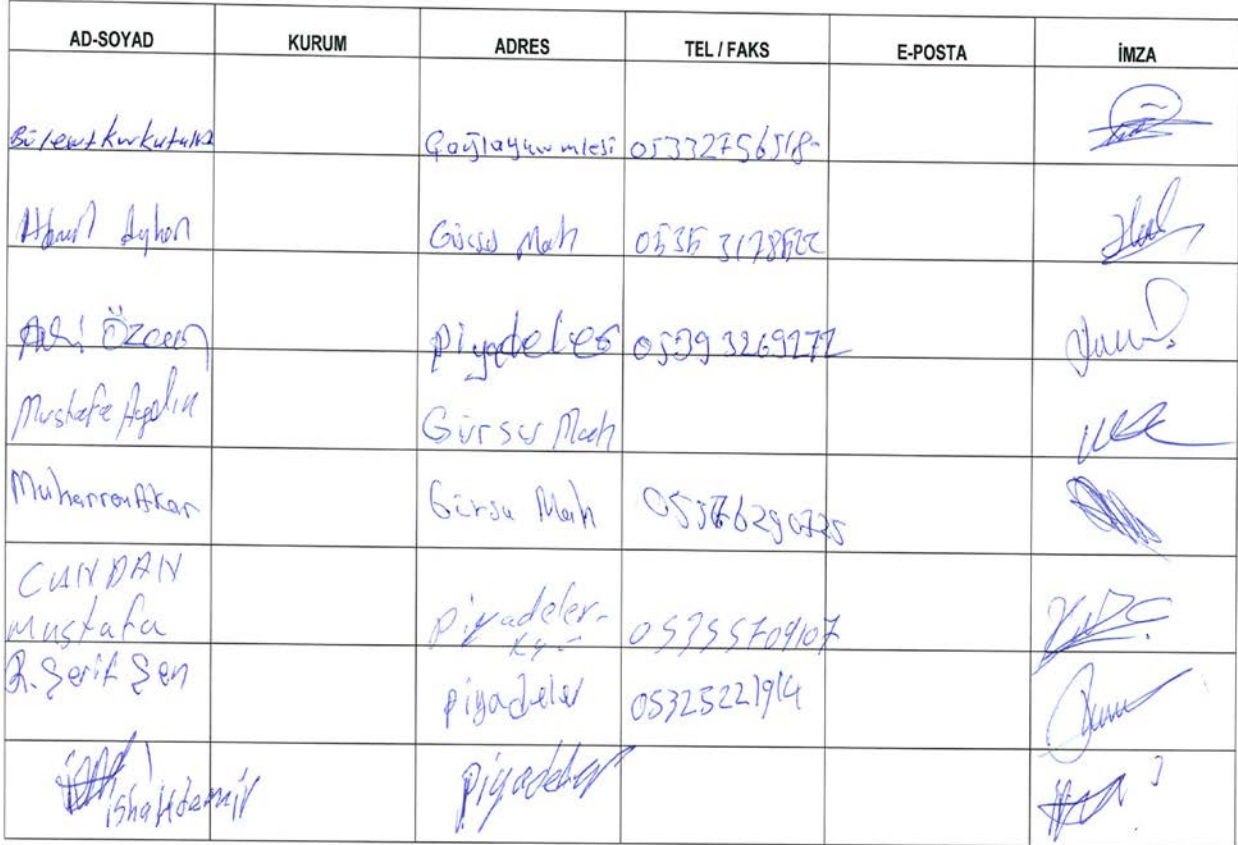 AD-SOYAD KURUM ADRES TEL / FAKS E-POSTA İMZA
Bülent Çağlayan mlesi
Ayhan Gürsu Mah
Özcan piyadeler 05393269272
Mustafa Aydın Gürsu Mah
Muharrem Akar Gürsu Mah
CUNDAN
Mustafa piyadeler 05355709107
R. Şerif Şen piyadeler 05325221914
ishak demir piyadeler